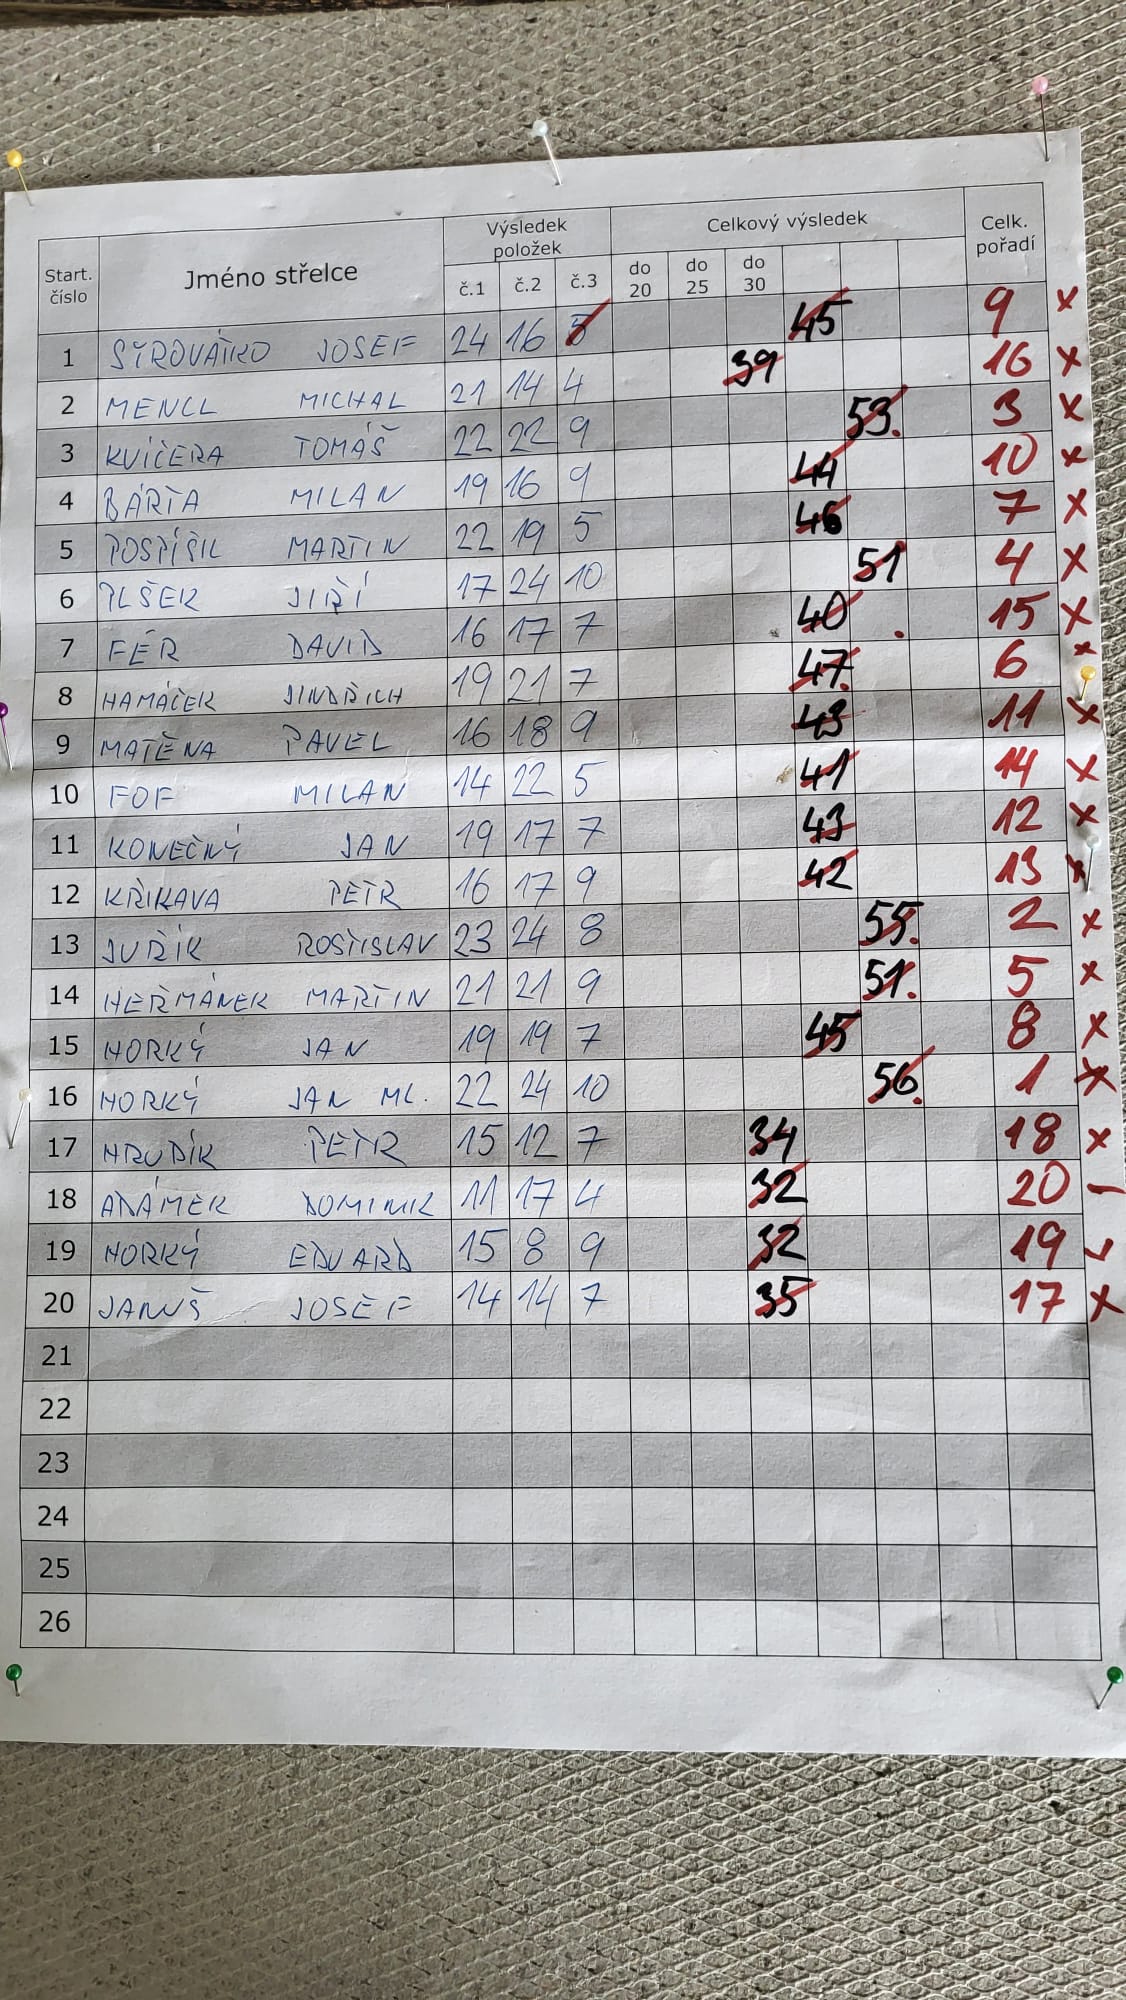 Start. číslo Jméno střelce Výsledek položek Celkový výsledek Celk. pořadí
č.1 č.2 č.3 do 20 do 25 do 30
1 SYROVÁTKO JOSEF 24 16 5 45 9 x
2 MENCL MICHAL 21 14 4 39 16 x
3 KVÍČERA TOMÁŠ 22 22 9 53. 3 x
4 BÁRTA MILAN 19 16 9 44 10 x
5 POSPÍŠIL MARTIN 22 19 5 46 7 x
6 PLŠEK JIŘÍ 17 24 10 51 4 x
7 FÉR DAVID 16 17 7 40 15 x
8 HAMÁČEK JINDŘICH 19 21 7 47. 6 x
9 MATĚNA PAVEL 16 18 9 43 11 x
10 FOF MILAN 14 22 5 41 14 x
11 KONEČNÝ JAN 19 17 7 43 12 x
12 KŘIKAVA PETR 16 17 9 42 13 x
13 JUŘÍK ROSTISLAV 23 24 8 55. 2 x
14 HEŘMÁNEK MARTIN 21 21 9 51. 5 x
15 HORKÝ JAN 19 19 7 45 8 x
16 HORKÝ JAN ML. 22 24 10 56. 1 x
17 HRUDÍK PETR 15 12 7 34 18 x
18 ADÁMEK DOMINIK 11 17 4 32 20 –
19 HORKÝ EDUARD 15 8 9 32 19
20 JANUŠ JOSEF 14 14 7 35 17 x
21
22
23
24
25
26